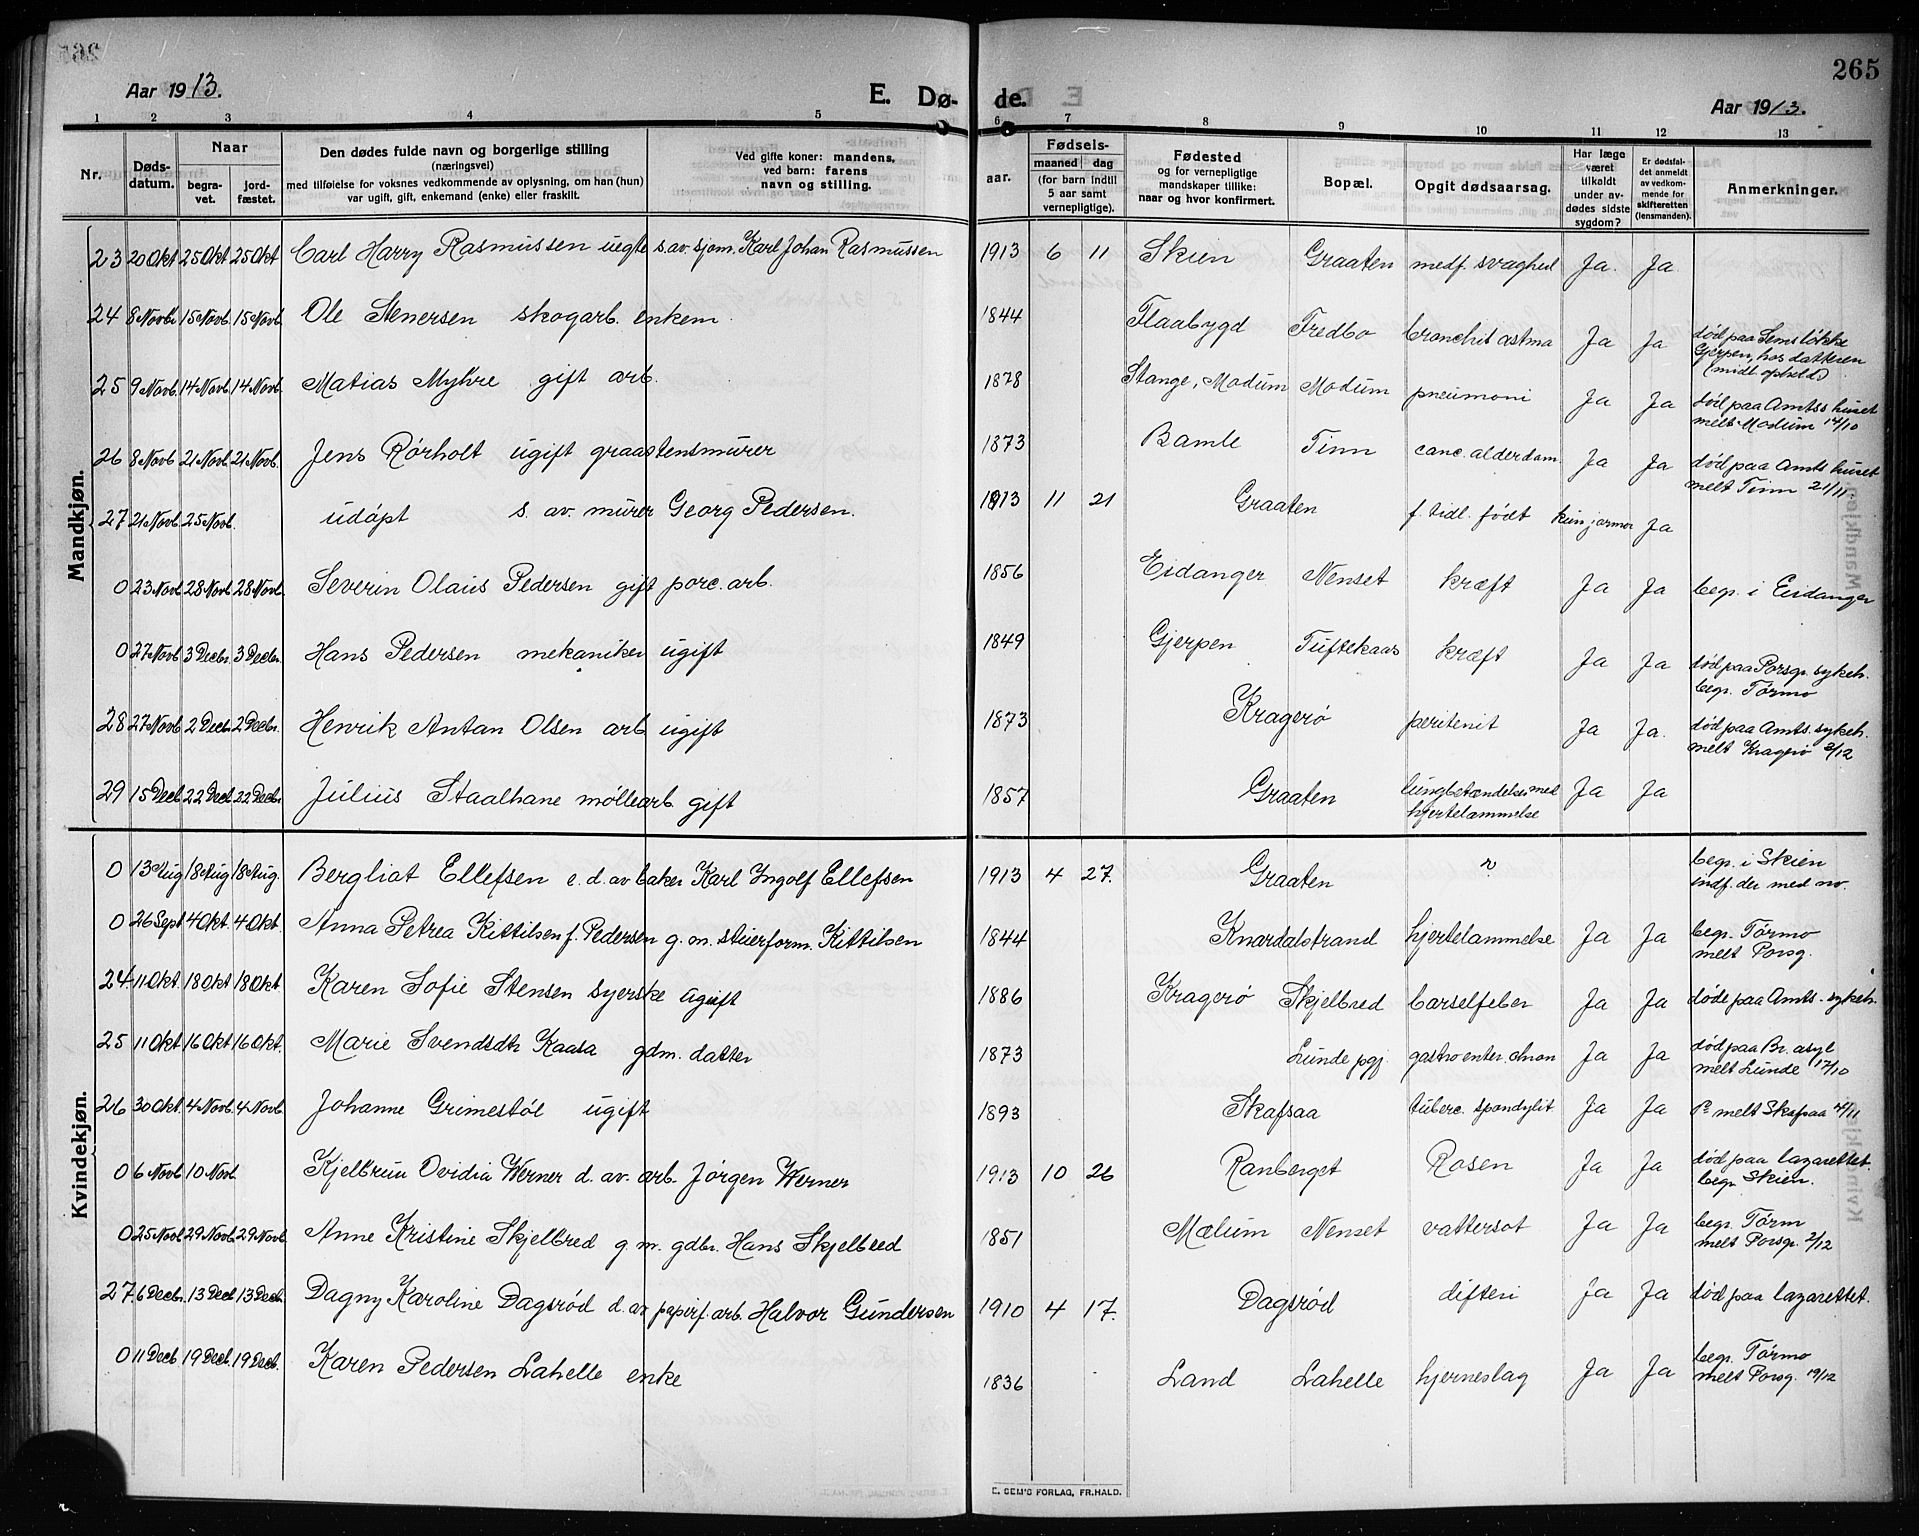 265
Aar 1913.
E. Døde.
Aar 1913.
1 2 3 4 5 6 7 8 9 10 11 12 13
Nr.
Døds-
datum.
Naar
begra-
vet.
jord-
fæstet.
Den dødes fulde navn og borgerlige stilling
(næringsvei)
med tilføielse for voksnes vedkommende av oplysning, om han (hun)
var ugift, gift, enkemand (enke) eller fraskilt.
Ved gifte koner: mandens,
ved barn: farens
navn og stilling.
Fødsels-
aar.
maaned dag
(for barn indtil
5 aar samt
vernepligtige).
Fødested
og for vernepligtige
mandskaper tillike:
naar og hvor konfirmert.
Bopæl.
Opgit dødsaarsag.
Har læge
været
tilkaldt
under av-
dødes sidste
sygdom?
Er dødsfal-
det anmeldt
av vedkom-
mende for
skifteretten
(lensmanden).
Anmerkninger.
Mandkjøn.
23 20 Okt 25 Okt 25 Okt Carl Harry Rasmussen uegte s. av sjøm. Karl Johan Rasmussen 1913 6 11 Skien Graaten medf. svaghed Ja. Ja
24 8 Novb 15 Novb. 15 Novb. Ole Stenersen skogarb. enkem. 1844 Flaabygd Fredbo bronchit astma Ja Ja død paa Semsløkke
Gjerpen, hos datteren
(midl. ophold)
25 9 Novb. 14 Novb. 14 Novb. Matias Myhre gift arb. 1878 Stange, Modum Modum pneumoni Ja Ja død paa Amtss huset
melt Modum 14/10
26 8 Novb 21 Novb. 21 Novb. Jens Rørholt ugift graastensmurer 1873 Bamle Tinn canc. alderdom Ja Ja død paa Amtshuset
melt Tinn 21/11.
27 21 Novb. 25 Novb. udøpt s. av. murer Georg Pedersen. 1913 11 21 Graaten f. tidl. født kun jormor Ja
0 23 Novb 28 Novb 28 Novb. Severin Olaus Pedersen gift porc. arb. 1856 Eidanger Nenset kræft Ja Ja begr. i Eidanger
0 27 Novb 3 Decbr. 3 Decbr. Hans Pedersen mekaniker ugift 1849 Gjerpen Tuftekaas kræft Ja Ja død paa Porsgr. sykeh.
begr. Tørmo
28 27 Novb 2 Decbr 2 Decbr. Henrik Antan Olsen arb ugift 1873 Kragerø peritenit Ja Ja. død paa Amts. sykeh.
melt Kragerø 2/12
29 15 Decb. 22 Decb 22 Decbr. Julius Staalhane møllearb. gift 1857 Graaten lungbetændelse med
hjertelammelse Ja Ja
Kvindekjøn.
0 13 Aug 18 Aug 18 Aug. Bergliot Ellefsen e. d. av baker Karl Ingolf Ellefsen 1913 4 27. Graaten begr. i Skien
indf. der med no.
0 26 Sept 4 Okt. 4 Okt. Anna Petrea Kittilsen f. Pedersen g. m. stuerform. Kittilsen 1844 Knardalstrand hjertelammelse Ja Ja begr. Tørmo
melt Porsg.
24 11 Okt. 18 Okt 18 Okt. Karen Sofie Stensen syerske ugift 1886 Kragerø Skjelbred barselfeber Ja Ja døde paa Amts. sykeh.
25 11 Okt 16 Okt 16 Okt. Marie Svendsdtr Kaasa gdm. datter 1873 Lunde pgj. gastro enter. chron Ja Ja død paa Br. asyl
melt Lunde 17/10
26 30 Okt. 4 Novb. 4 Novb. Johanne Grimestøl ugift 1893 Skafsaa tuberc. spondylit Ja Ja melt Skafsaa 4/11
0 6 Novb 10 Novb. Kjelbrun Ovidia Werner d. av. arb. Jørgen Werner 1913 10 26 Ranberget Rosen Ja Ja død paa lazarettet.
begr Skien.
0 25 Novb 29 Novb. 29 Novb. Anne Kristine Skjelbred g. m. gdbr. Hans Skjelbred 1851 Mælum Nenset vattersot Ja Ja begr. Tørm
melt Porsgr. 2/12
27 6 Decbr. 13 Decb 13 Decb. Dagny Karoline Dagsrød d. av papirf. arb. Halvor Gundersen 1910 4 17. Dagsrød difteri Ja Ja død paa lazarettet.
0 11 Decb 19 Decb. 19 Decb. Karen Pedersen Lahelle enke 1836 Land Lahelle hjerneslag Ja Ja begr. Tørmo
melt Porsg. 19/12
E. SEM'S FORLAG, FR.HALD.